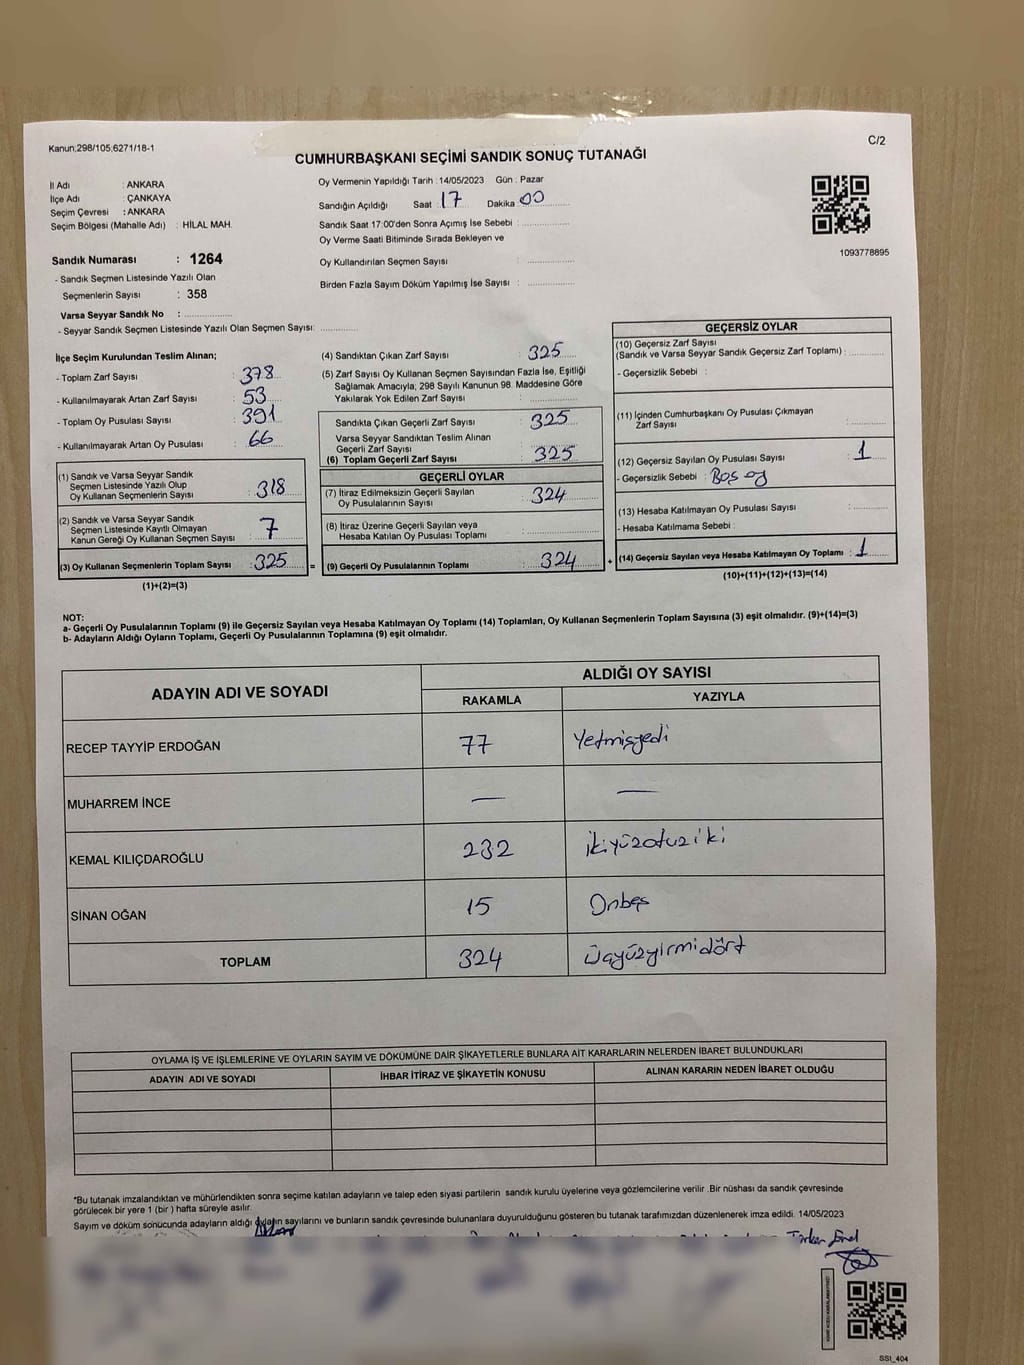 Kanun;298/105;6271/18-1
C/2
CUMHURBAŞKANI SEÇİMİ SANDIK SONUÇ TUTANAĞI
İl Adı : ANKARA
İlçe Adı : ÇANKAYA
Seçim Çevresi : ANKARA
Seçim Bölgesi (Mahalle Adı) : HİLAL MAH.
Sandık Numarası : 1264
- Sandık Seçmen Listesinde Yazılı Olan
Seçmenlerin Sayısı : 358
Varsa Seyyar Sandık No :
- Seyyar Sandık Seçmen Listesinde Yazılı Olan Seçmen Sayısı:
Oy Vermenin Yapıldığı Tarih :14/05/2023 Gün : Pazar
Sandığın Açıldığı Saat : 17 Dakika : 00
Sandık Saat 17:00'den Sonra Açımış İse Sebebi :
Oy Verme Saati Bitiminde Sırada Bekleyen ve
Oy Kullandırılan Seçmen Sayısı :
Birden Fazla Sayım Döküm Yapılmış İse Sayısı :
1093778895
İlçe Seçim Kurulundan Teslim Alınan;
- Toplam Zarf Sayısı : 378
- Kullanılmayarak Artan Zarf Sayısı : 53
- Toplam Oy Pusulası Sayısı : 391
- Kullanılmayarak Artan Oy Pusulası : 66
(1) Sandık ve Varsa Seyyar Sandık
Seçmen Listesinde Yazılı Olup
Oy Kullanan Seçmenlerin Sayısı : 318
(2) Sandık ve Varsa Seyyar Sandık
Seçmen Listesinde Kayıtlı Olmayan
Kanun Gereği Oy Kullanan Seçmen Sayısı : 7
(3) Oy Kullanan Seçmenlerin Toplam Sayısı : 325
(1)+(2)=(3)
(4) Sandıktan Çıkan Zarf Sayısı : 325
(5) Zarf Sayısı Oy Kullanan Seçmen Sayısından Fazla İse, Eşitliği
Sağlamak Amacıyla; 298 Sayılı Kanunun 98. Maddesine Göre
Yakılarak Yok Edilen Zarf Sayısı :
Sandıkta Çıkan Geçerli Zarf Sayısı : 325
Varsa Seyyar Sandıktan Teslim Alınan
Geçerli Zarf Sayısı
(6) Toplam Geçerli Zarf Sayısı : 325
GEÇERLİ OYLAR
(7) İtiraz Edilmeksizin Geçerli Sayılan
Oy Pusulalarının Sayısı : 324
(8) İtiraz Üzerine Geçerli Sayılan veya
Hesaba Katılan Oy Pusulası Toplamı :
= (9) Geçerli Oy Pusulalarının Toplamı : 324 +
GEÇERSİZ OYLAR
(10) Geçersiz Zarf Sayısı
(Sandık ve Varsa Seyyar Sandık Geçersiz Zarf Toplamı) :
- Geçersizlik Sebebi :
(11) İçinden Cumhurbaşkanı Oy Pusulası Çıkmayan
Zarf Sayısı :
(12) Geçersiz Sayılan Oy Pusulası Sayısı : 1
- Geçersizlik Sebebi : Boş oy
(13) Hesaba Katılmayan Oy Pusulası Sayısı :
- Hesaba Katılmama Sebebi :
(14) Geçersiz Sayılan veya Hesaba Katılmayan Oy Toplamı : 1
(10)+(11)+(12)+(13)=(14)
NOT:
a- Geçerli Oy Pusulalarının Toplamı (9) ile Geçersiz Sayılan veya Hesaba Katılmayan Oy Toplamı (14) Toplamları, Oy Kullanan Seçmenlerin Toplam Sayısına (3) eşit olmalıdır. (9)+(14)=(3)
b- Adayların Aldığı Oyların Toplamı, Geçerli Oy Pusulalarının Toplamına (9) eşit olmalıdır.
ADAYIN ADI VE SOYADI
ALDIĞI OY SAYISI
RAKAMLA YAZIYLA
RECEP TAYYİP ERDOĞAN 77 Yetmişyedi
MUHARREM İNCE — —
KEMAL KILIÇDAROĞLU 232 ikiyüzotuziki
SİNAN OĞAN 15 Onbeş
TOPLAM 324 Üçyüzyirmidört
OYLAMA İŞ VE İŞLEMLERİNE VE OYLARIN SAYIM VE DÖKÜMÜNE DAİR ŞİKAYETLERLE BUNLARA AİT KARARLARIN NELERDEN İBARET BULUNDUKLARI
ADAYIN ADI VE SOYADI İHBAR İTİRAZ VE ŞİKAYETİN KONUSU ALINAN KARARIN NEDEN İBARET OLDUĞU
*Bu tutanak imzalandıktan ve mühürlendikten sonra seçime katılan adayların ve talep eden siyasi partilerin sandık kurulu üyelerine veya gözlemcilerine verilir .Bir nüshası da sandık çevresinde
görülecek bir yere 1 (bir ) hafta süreyle asılır.
Sayım ve döküm sonucunda adayların aldığı oyların sayılarını ve bunların sandık çevresinde bulunanlara duyurulduğunu gösteren bu tutanak tarafımızdan düzenlenerek imza edildi. 14/05/2023
SSI_404